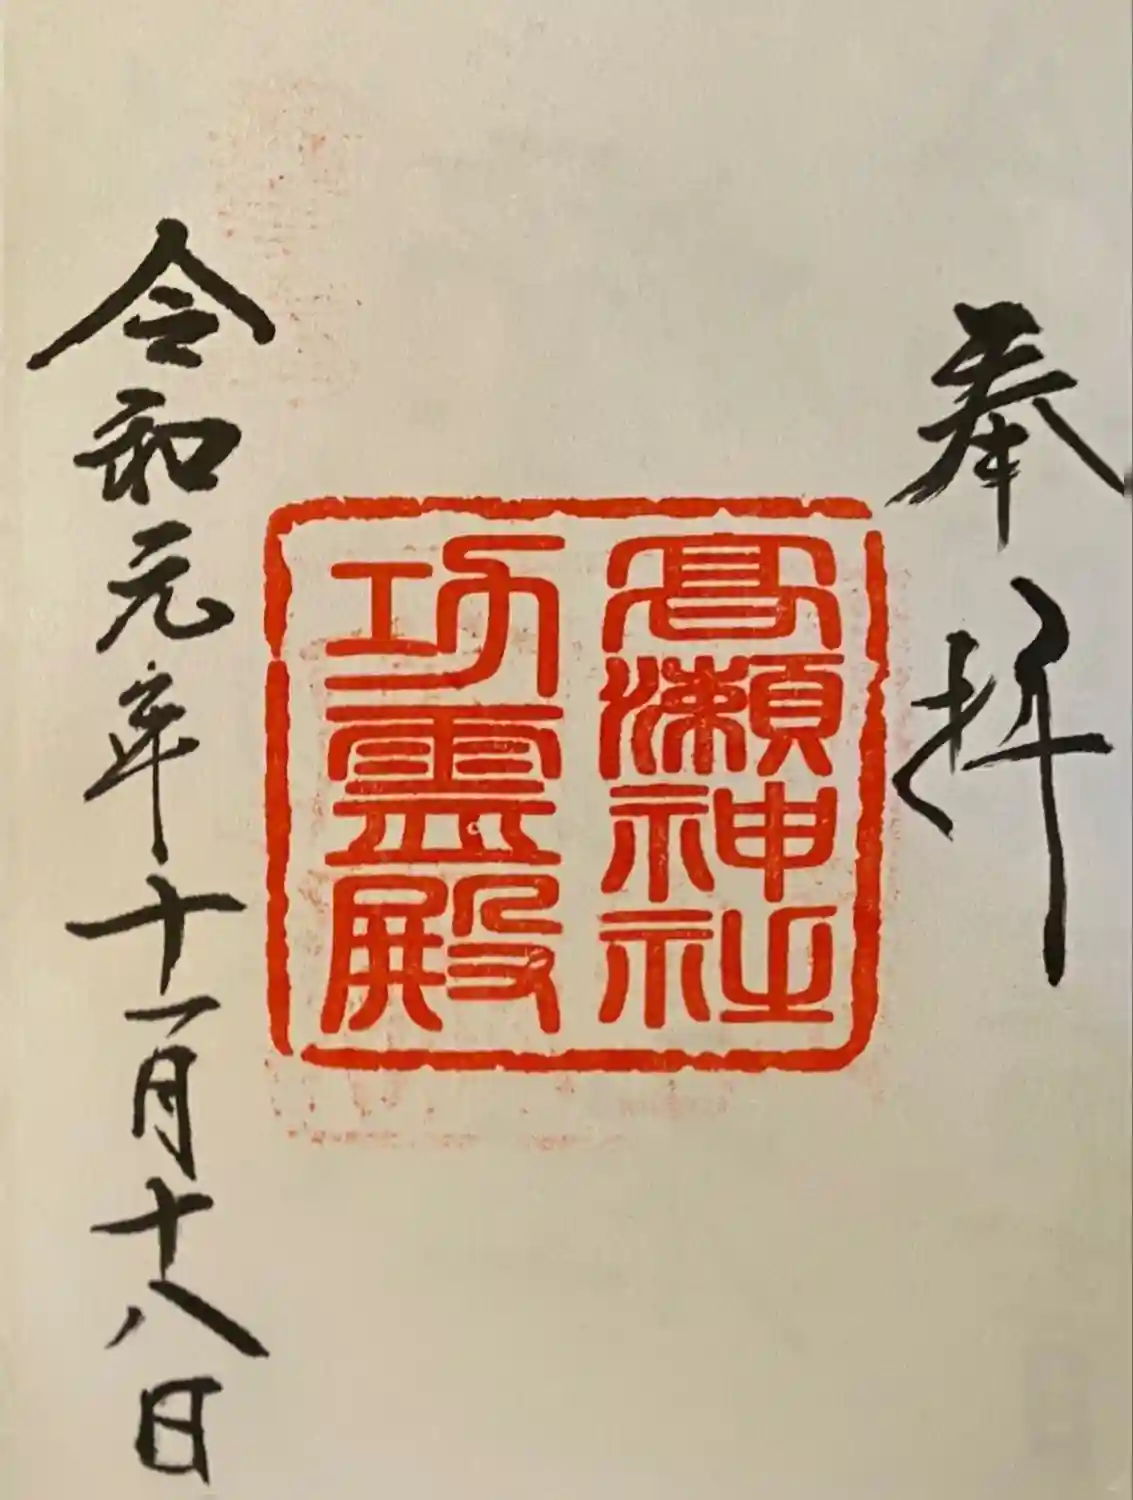 奉拝
髙瀬神社
功霊殿
令和元年十一月十八日